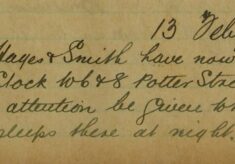 13 Feb
Hayes & Smith have now
Clock Wks 8 Potter Stre
attention be given
sleeps there at night.